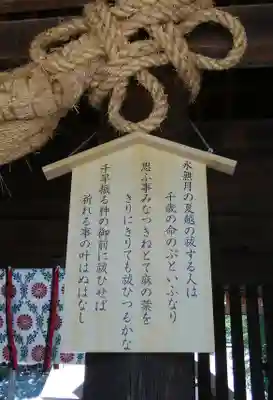 水無月の夏越の祓する人は
千歳の命のぶといふなり
思ふ事みなつきねとて麻の葉を
きりにきりても祓ひつるかな
千早振る神の御前に祓ひせば
祈れる事の叶はぬはなし